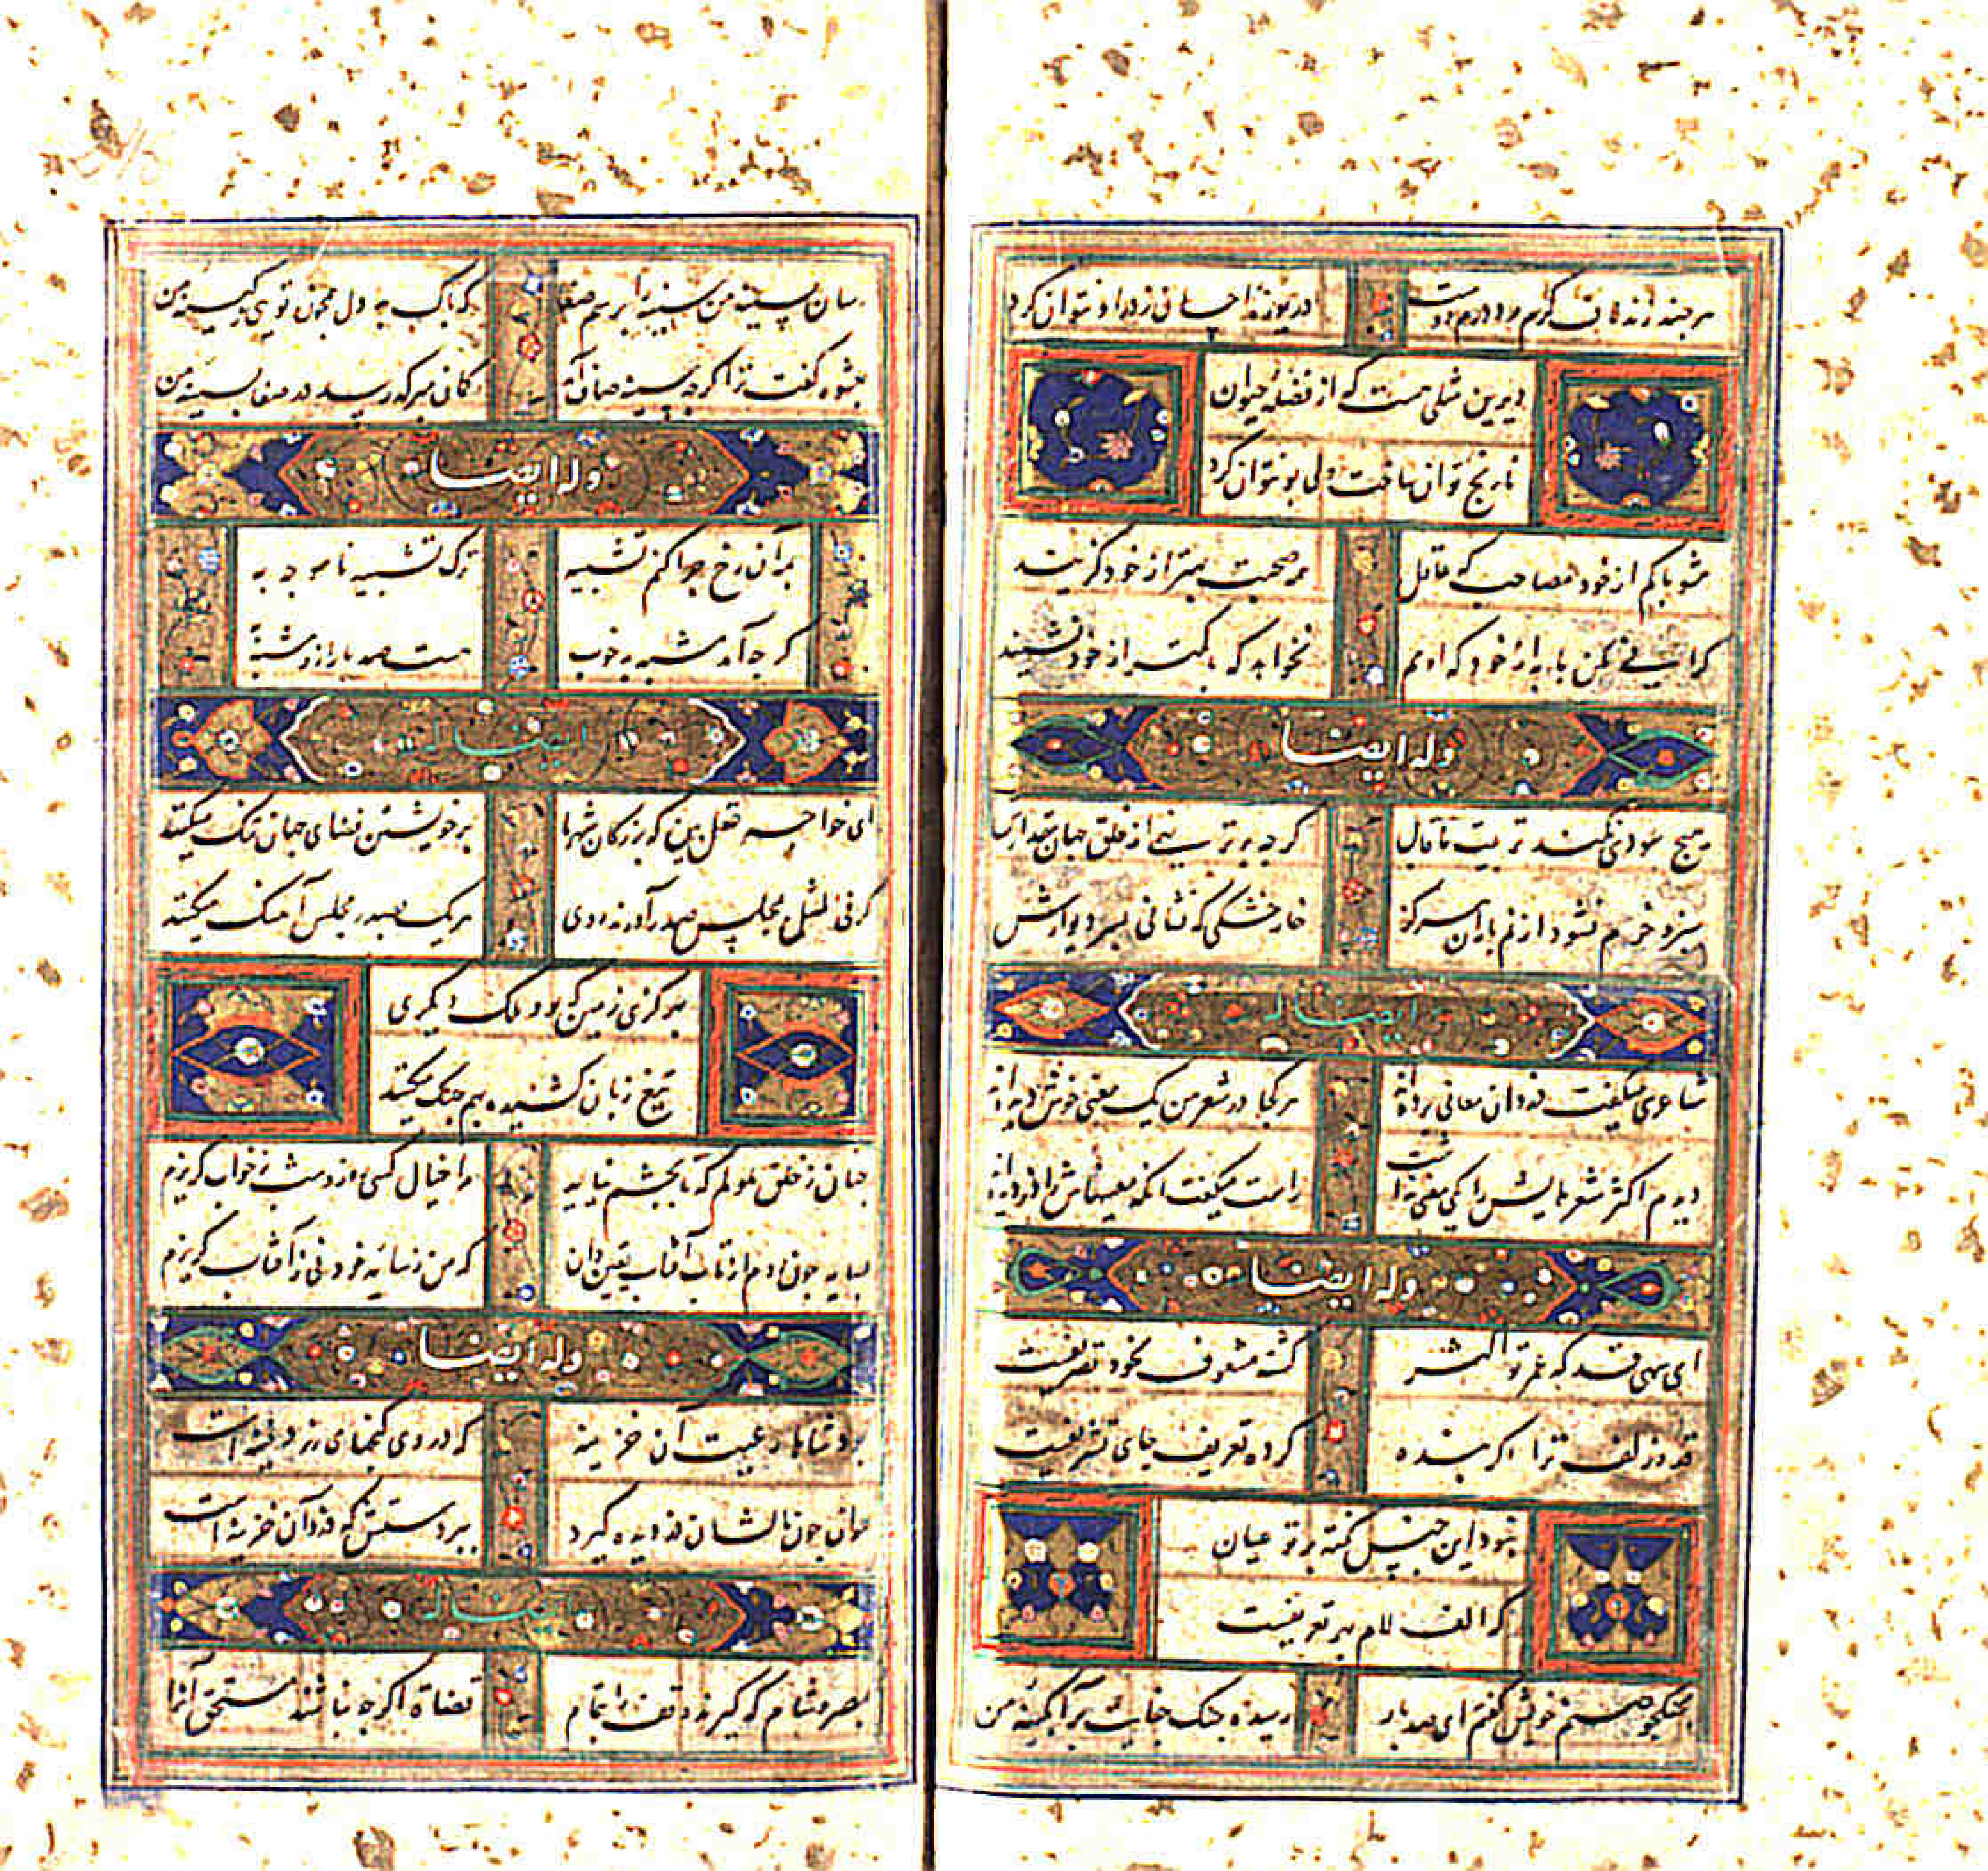 هر چند زند لاف کرم مرد درم دوست
دریوزهٔ احسان ز در او نتوان کرد
دیرین مثلی هست که از فضلهٔ حیوان
نارنج توان ساخت ولی بو نتوان کرد
مشو با کم از خود مصاحب که عاقل
همه صحبت بهتر از خود گزیند
گرانی مکن با به از خود که او هم
نخواهد که با کمتر از خود نشیند
وله ایضا
هیچ سودی نکند تربیت ناقابل
گرچه برتر نهی از خلق جهان مقدارش
سبز و خرم نشود از نم باران هرگز
خار خشکی که نشانی بسر دیوارش
ایضا له
شاعری میگفت دزدان معانی برده‌اند
هر کجا در شعر من یک معنی خوش دیده‌اند
دیدم اکثر شعرهایش را یکی معنی نداشت
راست میگفت آنکه معنیهاش را دزدیده‌اند
وله ایضا
ای سهی قد که عمر تو اکثر
گشته مصروف بخود تصریفست
قد و زلف ترا اگر بنده
کرده تعریف جای تشریفست
نبود این چنین نکته بر تو عیان
که الف لام بهر تعریفست
بجنگجو صنم خویش گفتم ای صد بار
رسیده جنگ جفایت بر آبگینهٔ من
بسان سینهٔ من سینه را بر سم صفا
که پاک به دل همچون تویی ز کینهٔ من
بعشوه گفت ترا گرچه سینه صاف آمد
گمان مبر که رسد در صفا بسینهٔ من
وله ایضا
بمه آن رخ چرا کنم تشبیه
ترک تشبیه ناموجه به
گرچه آمد مشبه به خوب
هست صد بار از او مشبه به
ایضا له
ای خواجه عقل بین که بزرگان شهرها
بر خویشتن فضای جهان تنگ میکنند
گر فی المثل بمجلس صدر آورند روی
هر یک بصدر مجلس آهنگ میکنند
بهر گزی زمین که بود ملک دیگری
تیغ زبان کشیده بهم جنگ میکنند
چنان ز خلق ملولم که تا بچشم نیاید
مرا خیال کسی روز و شب ز خواب گریزم
بسایه چون روم از تاب آفتاب یقین دان
که من ز سایهٔ خود نی ز آفتاب گریزم
وله ایضا
بود شاها رعیت آن خزینه
که در وی گنجهای زر دفینه است
عوان چون مالشان دزدیده گیرد
ببر دستش که دزد آن خزینه است
ایضا له
بمصر و شام که گیرند وقف را بتمام
قضاة اگرچه نباشند مستحق آنرا